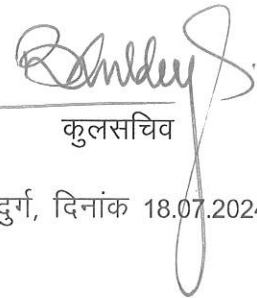 कुलसचिव
दुर्ग, दिनांक 18.07.2024